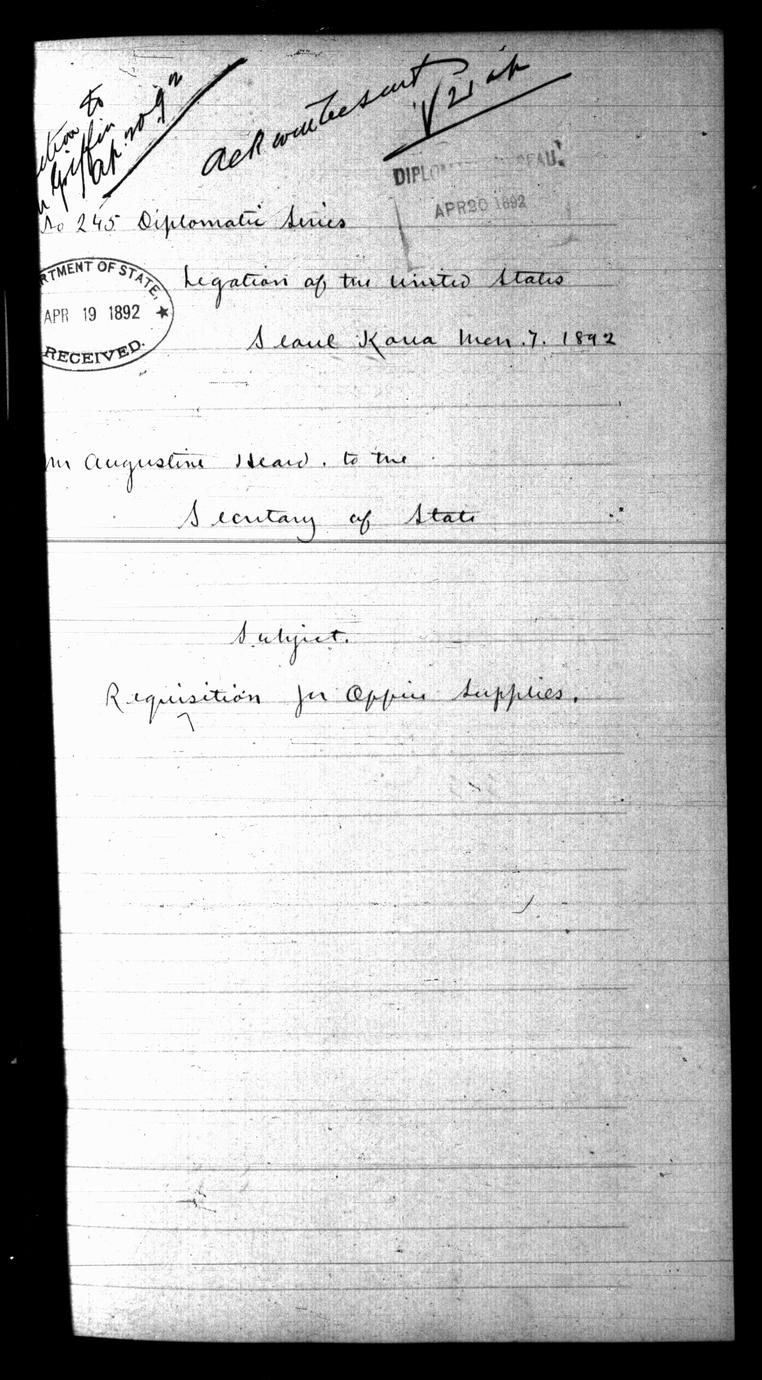 to
Griffin
Ap. 20. 92
Ack
21 Ap
DIPLOMATIC BUREAU.
APR 20 1892
No 245 Diplomatic Series
RTMENT OF STATE,
APR 19 1892
RECEIVED.
Legation of the United States
Seoul Korea Mch. 7. 1892
Augustine Heard. to the
Secretary of State
Subject.
Requisition for Office Supplies.